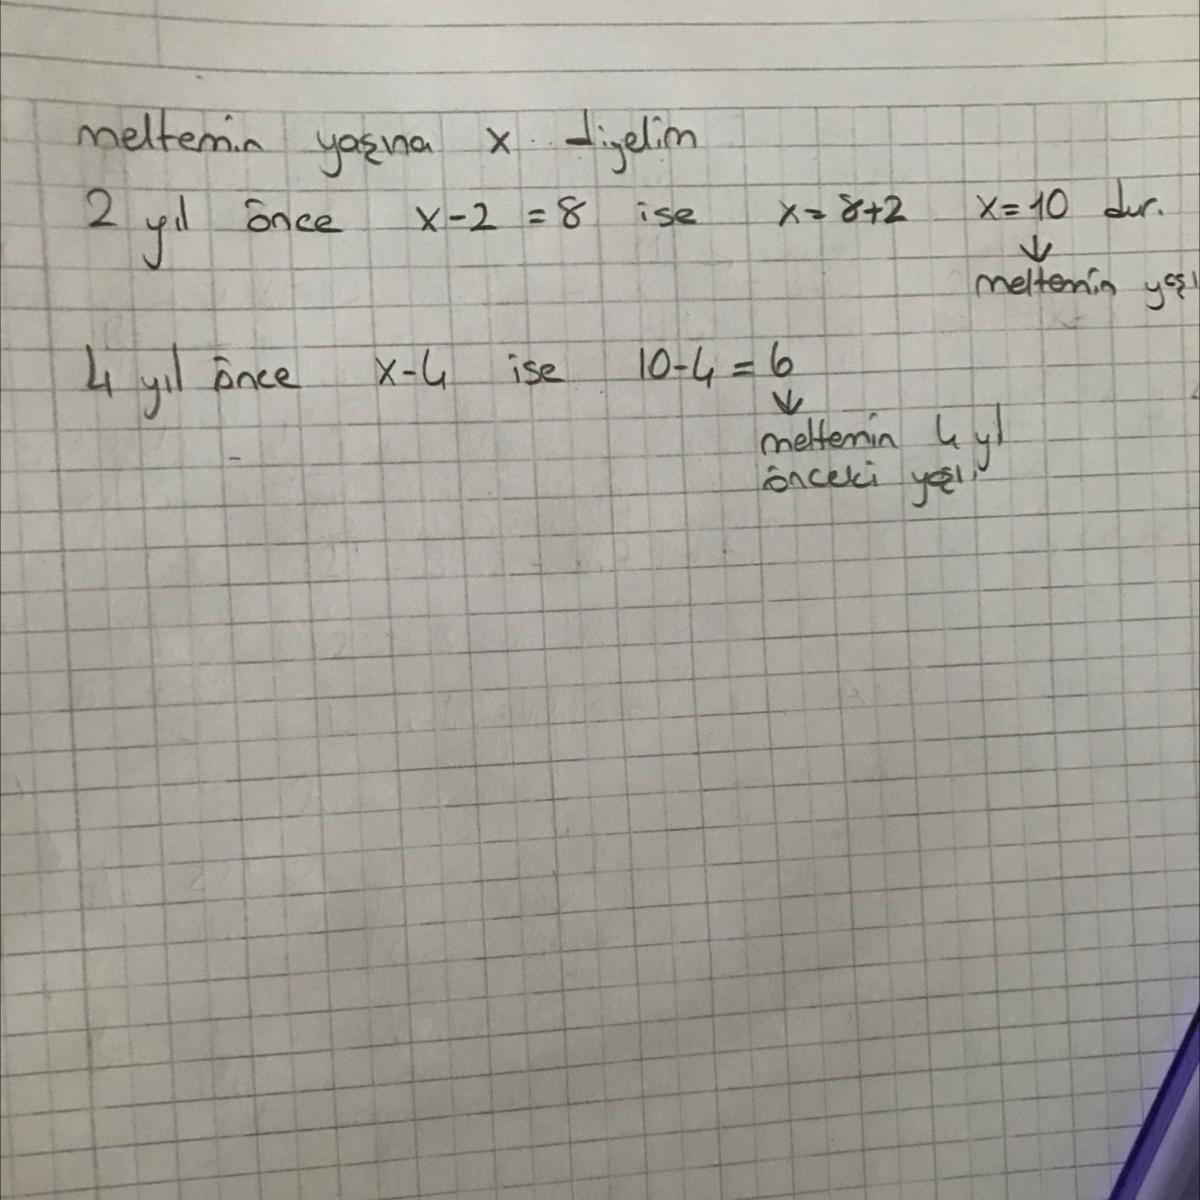 meltemin yaşına x diyelim
2 yıl önce x-2 = 8 ise x = 8+2 x = 10 dur.
↓
meltemin yaşı
4 yıl önce x-4 ise 10-4 = 6
↓
meltemin 4 yıl
önceki yaşı.